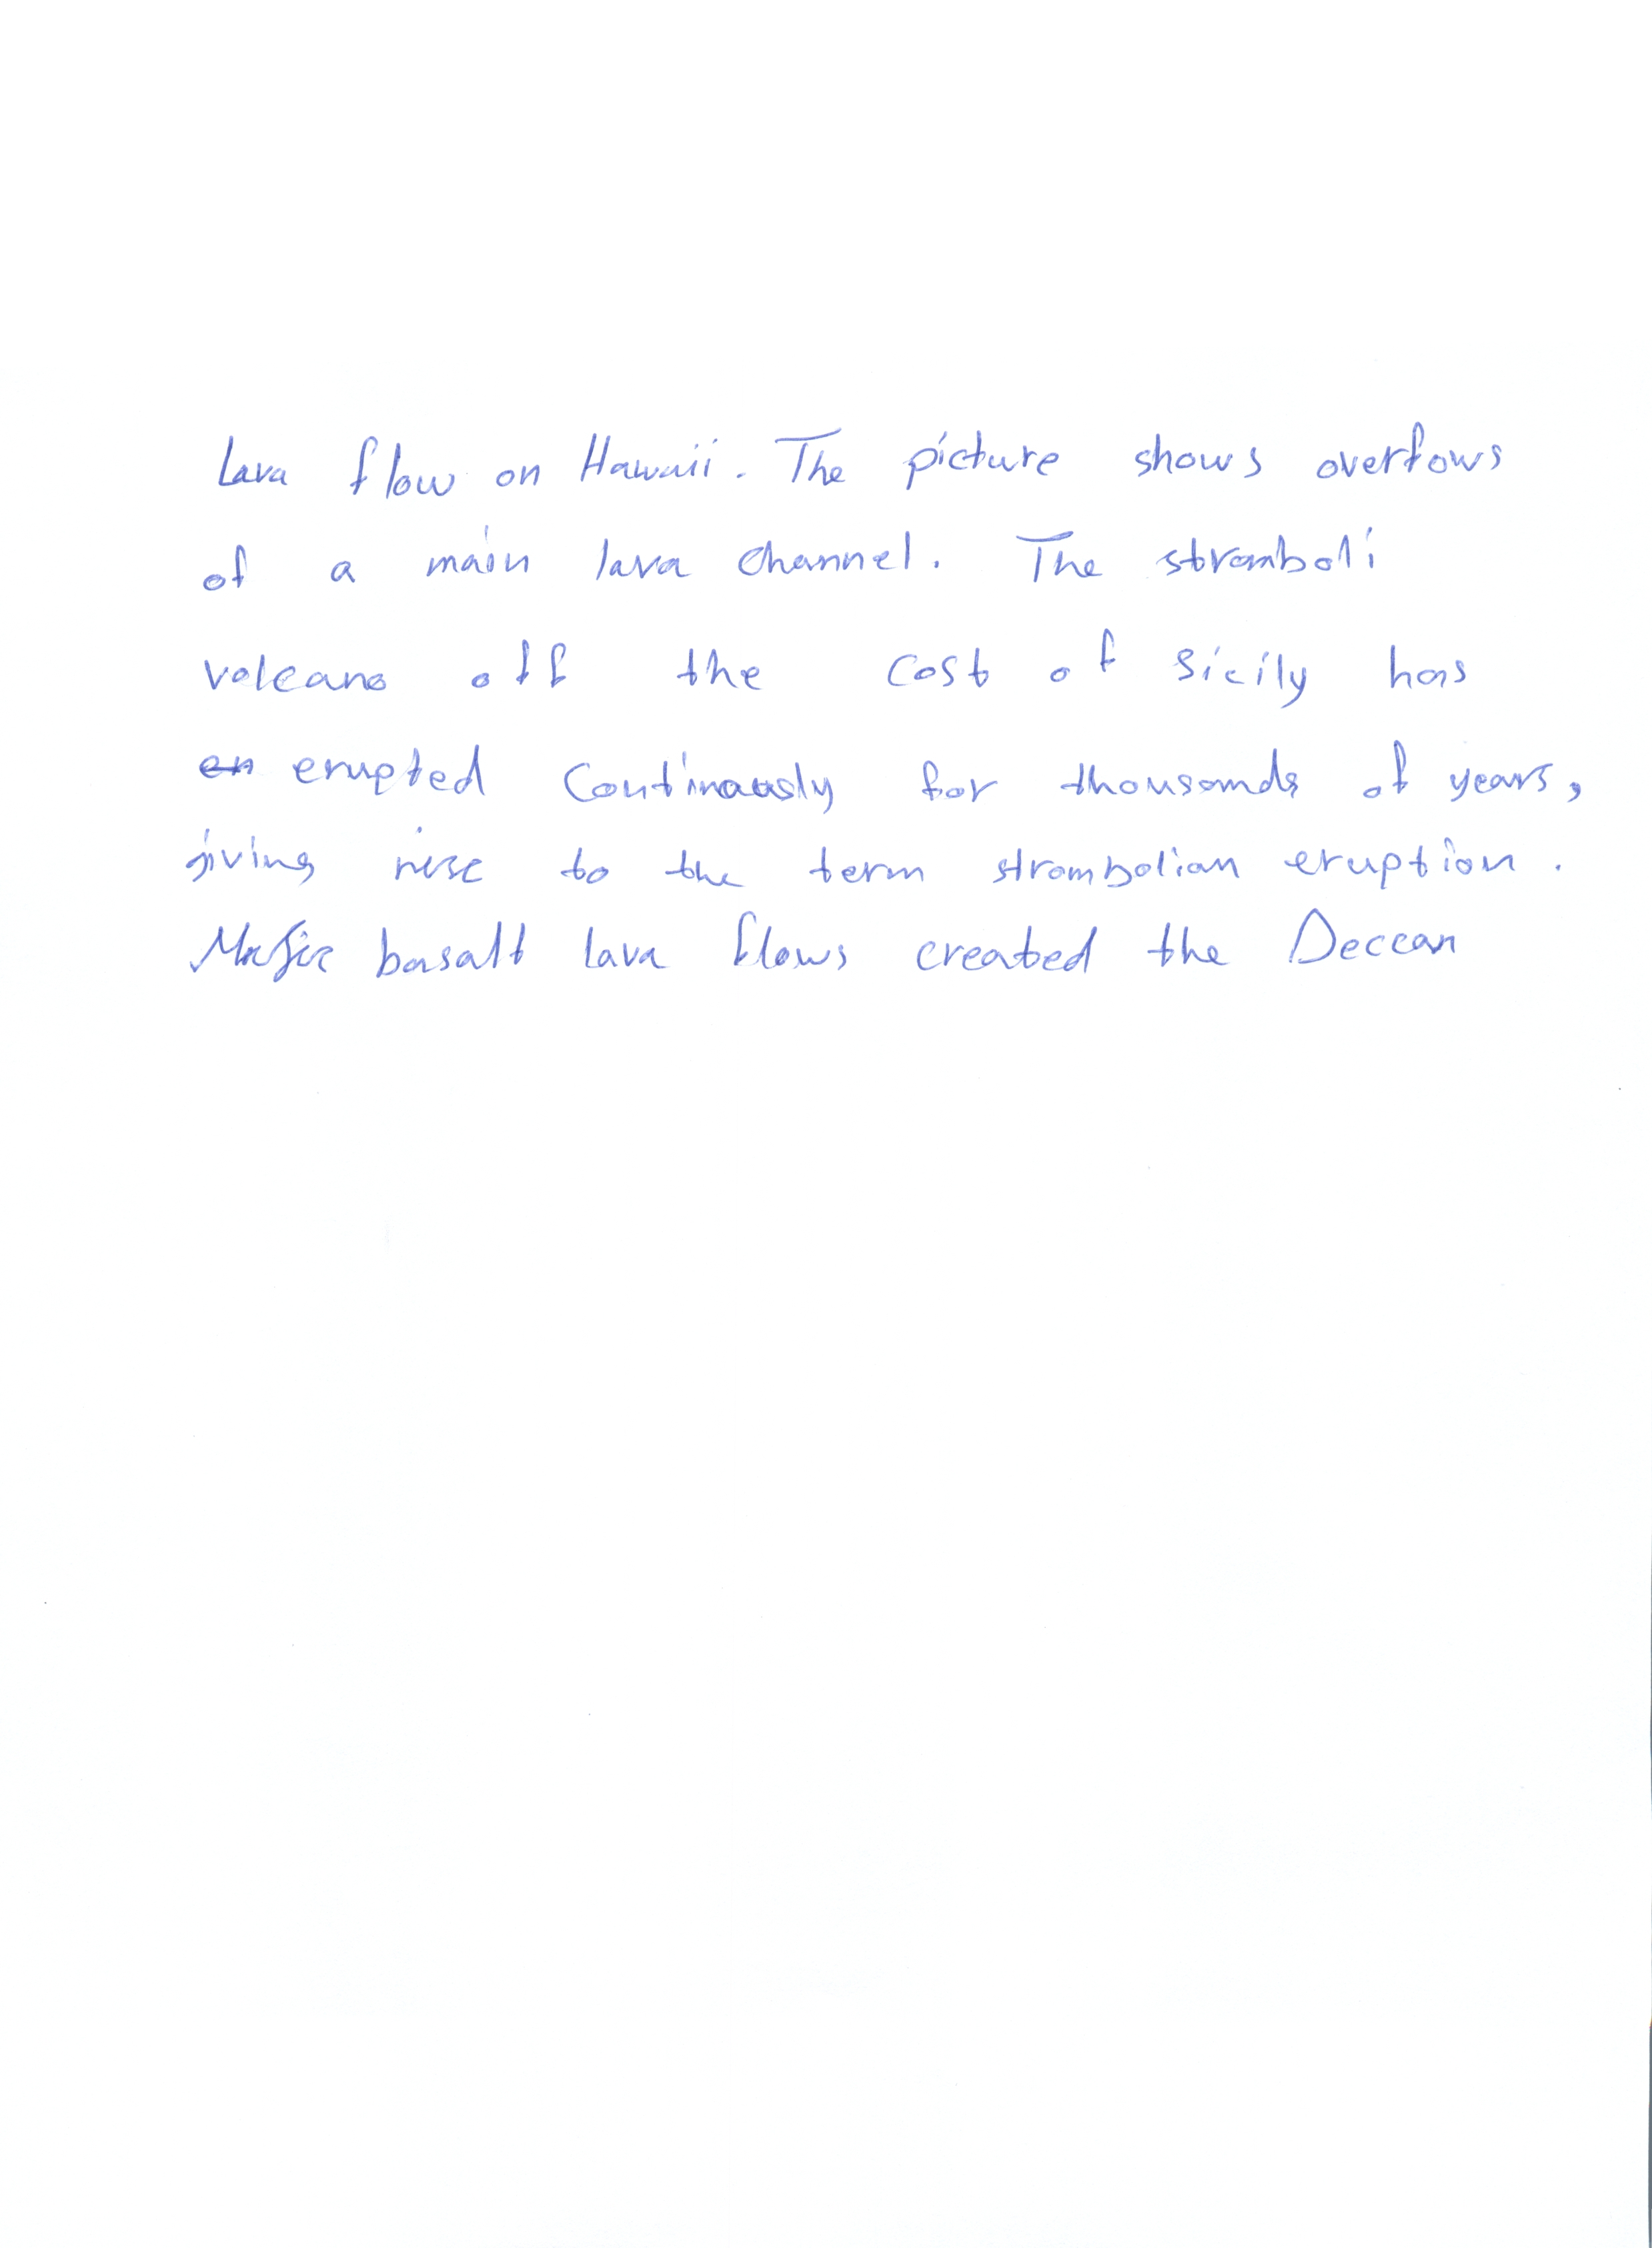 Lava flow on Hawaii. The picture shows overfows
of a main lava channel. The stromboli
volcano off the cost of sicily has
en erupted continously for thousands of years,
giving rise to the term strombolian eruption.
Mafic basalt lava flows created the Deccan